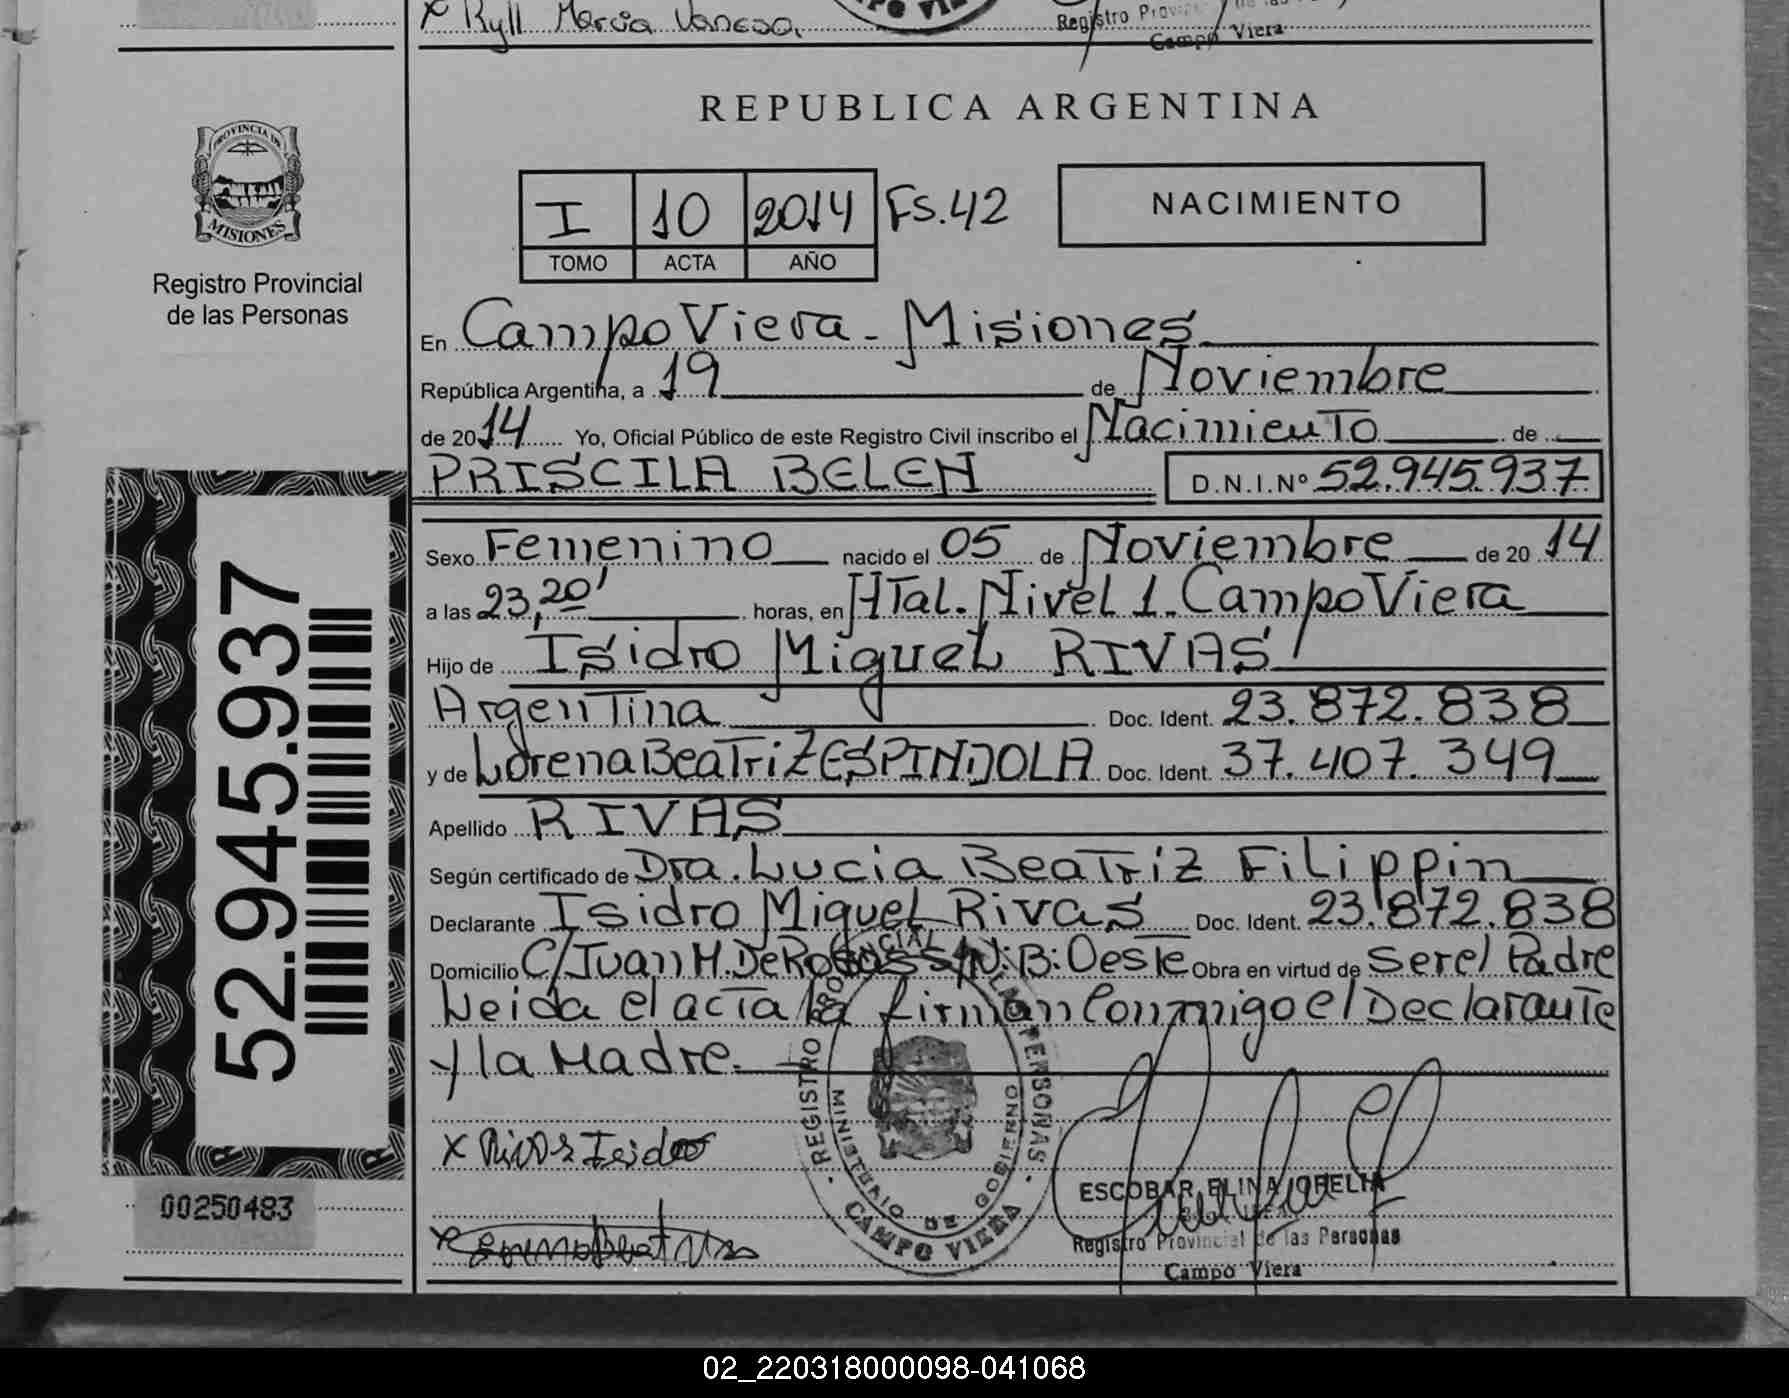 x Ryll Marcia Vanesa.
Registro Provincial de las
Campo Viera
REPUBLICA ARGENTINA
PROVINCIA DE
MISIONES
Registro Provincial
de las Personas
I 10 2014 Fs.42
TOMO ACTA AÑO
NACIMIENTO
En Campo Viera - Misiones
República Argentina, a 19 de Noviembre
de 2014 Yo, Oficial Público de este Registro Civil inscribo el Nacimiento de
PRISCILA BELEN D.N.I.Nº 52.945.937
Sexo Femenino nacido el 05 de Noviembre de 2014
a las 23,20' horas, en HTal. Nivel 1. Campo Viera
Hijo de Isidro Miguel RIVAS
Argentina Doc. Ident. 23.872.838
y de Lorena Beatriz ESPINDOLA Doc. Ident. 37.407.349
Apellido RIVAS
Según certificado de Dra. Lucia Beatriz Filippin
Declarante Isidro Miguel Rivas Doc. Ident. 23.872.838
Domicilio C/Juan M. De Rosas S/N: B: Oeste Obra en virtud de Ser el Padre
Leida el acta la firman Conmigo el Declarante
y la Madre.
x Rivas Isidro
REGISTRO PROVINCIAL DE LAS PERSONAS
MINISTERIO DE GOBIERNO
CAMPO VIERA
ESCOBAR ELINA OFELIA
Registro Provincial de las Personas
Campo Viera
52.945.937
00250483
02_220318000098-041068